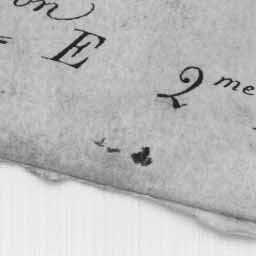 on
= E 2me